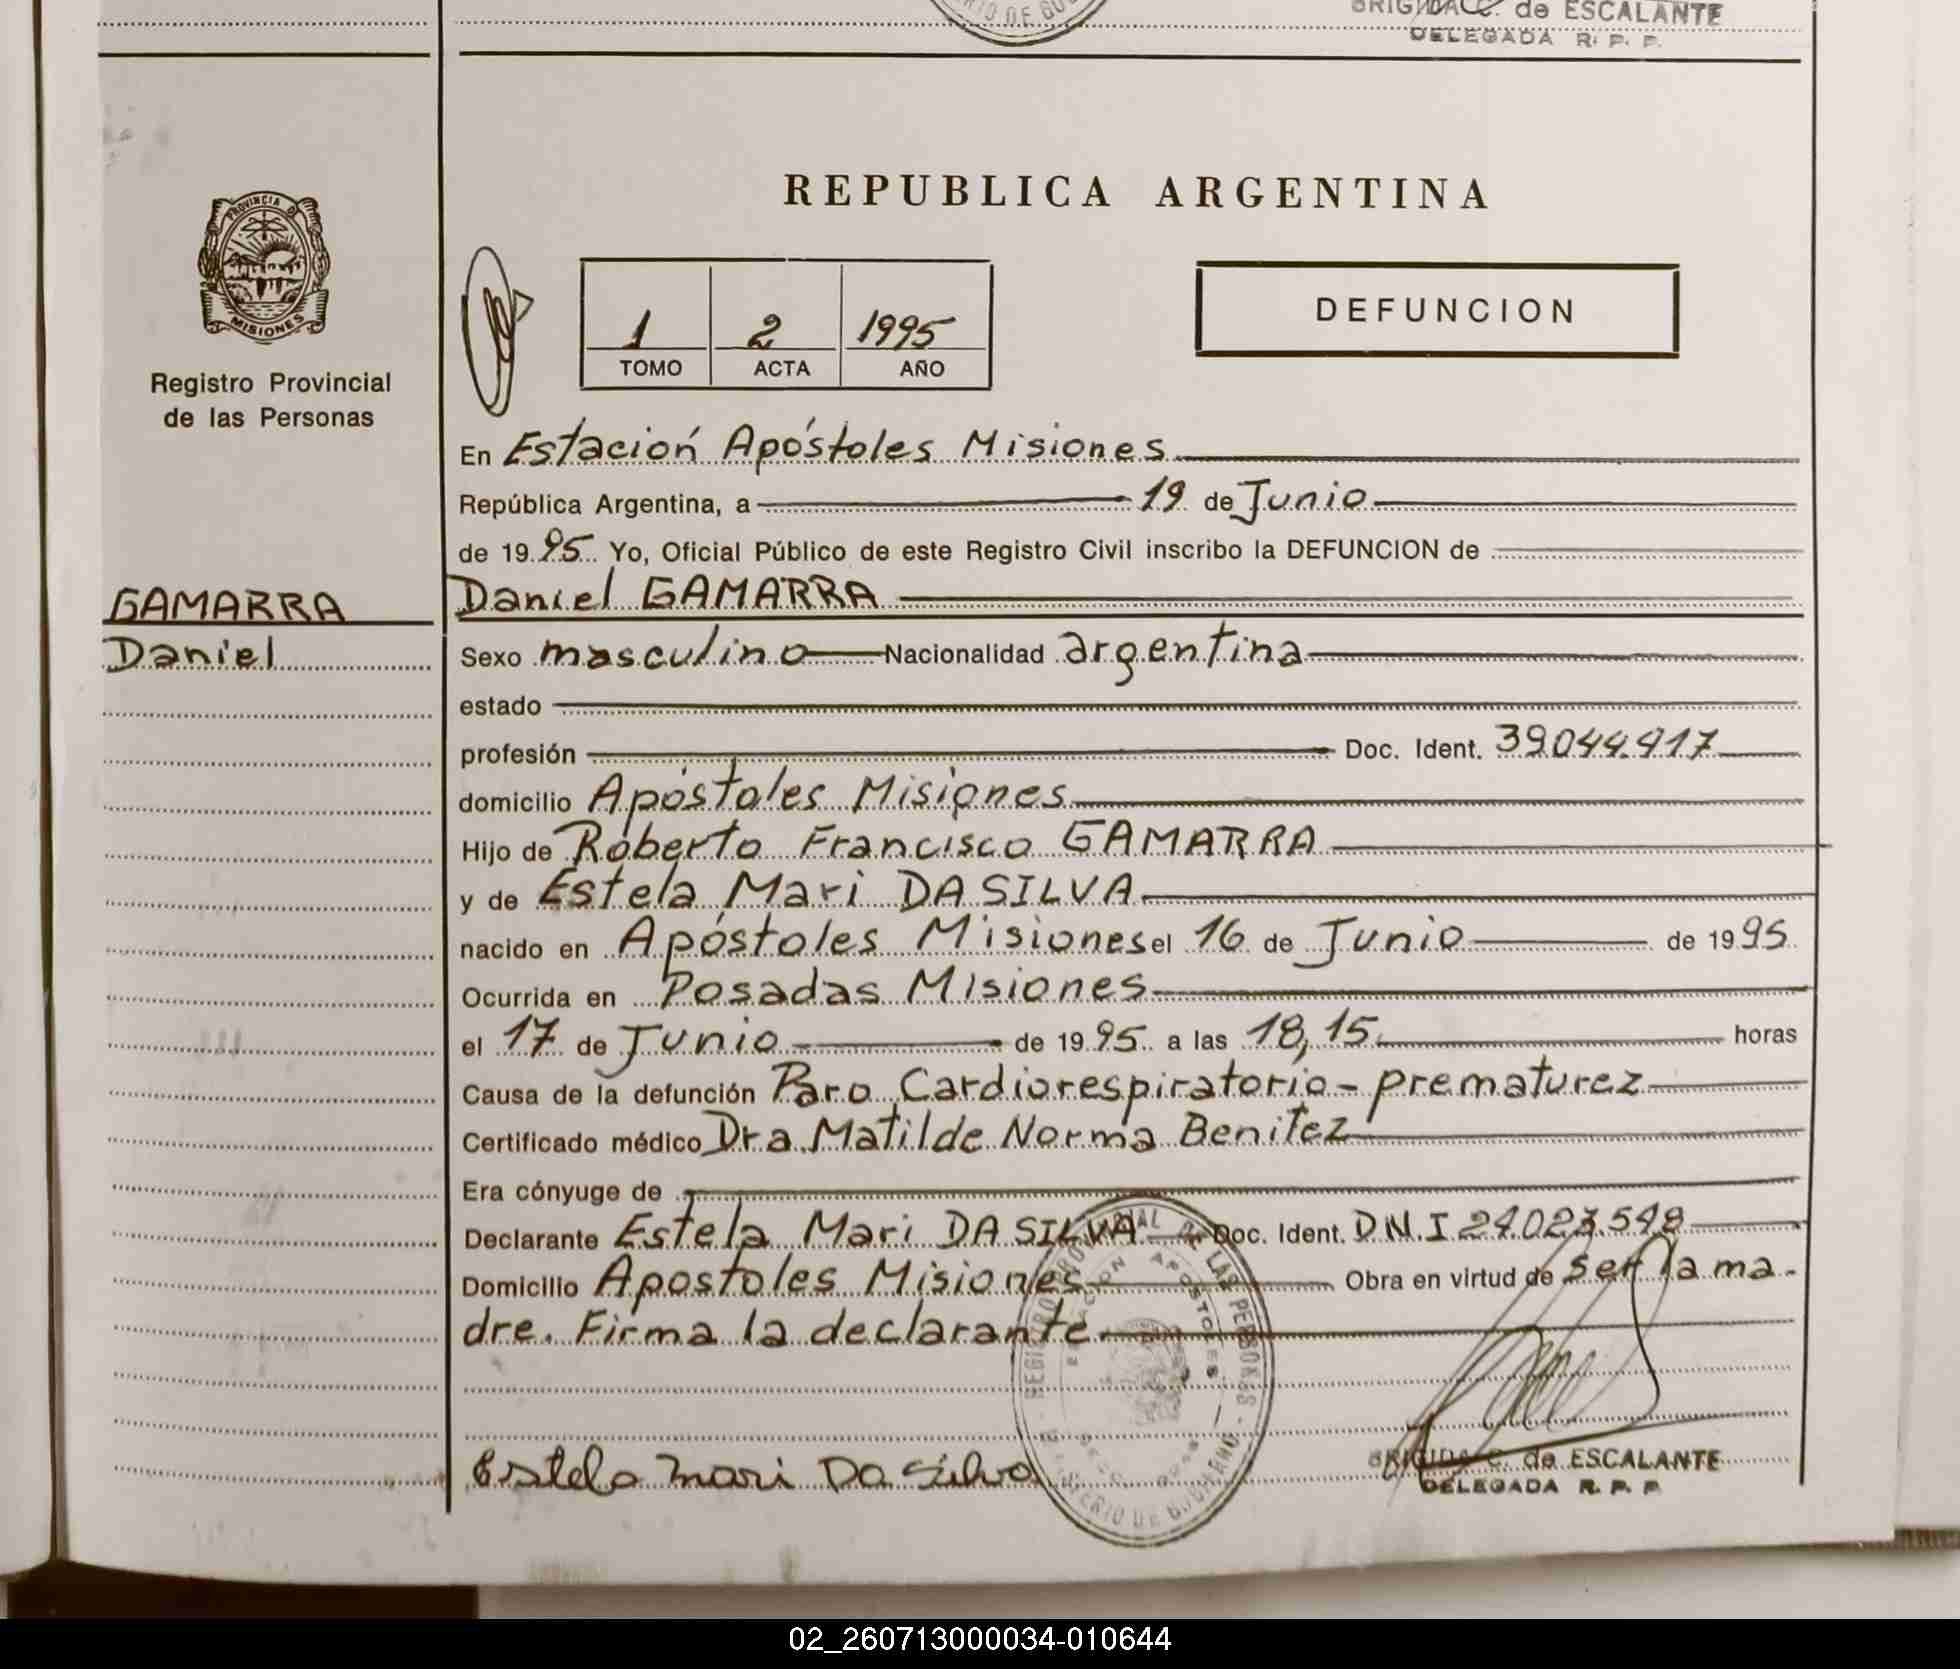 BRIGIDA C. de ESCALANTE
DELEGADA R. P. P.
REPUBLICA ARGENTINA
PROVINCIA D
MISIONES
Registro Provincial
de las Personas
1 2 1995
TOMO ACTA AÑO
DEFUNCION
En Estación Apóstoles Misiones
República Argentina, a 19 de Junio
de 1995 Yo, Oficial Público de este Registro Civil inscribo la DEFUNCION de
GAMARRA
Daniel
Daniel GAMARRA
Sexo masculino Nacionalidad argentina
estado
profesión Doc. Ident. 39.044.917
domicilio Apóstoles Misiones
Hijo de Roberto Francisco GAMARRA
y de Estela Mari DA SILVA
nacido en Apóstoles Misiones el 16 de Junio de 1995
Ocurrida en Posadas Misiones
el 17 de Junio de 1995 a las 18,15 horas
Causa de la defunción Paro Cardiorespiratorio - prematurez
Certificado médico Dra Matilde Norma Benitez
Era cónyuge de
Declarante Estela Mari DA SILVA Doc. Ident. D.N.I 24.023.548
Domicilio Apostoles Misiones Obra en virtud de ser la ma-
dre. Firma la declarante.
Estela Mari Da Silva
BRIGIDA C. de ESCALANTE
DELEGADA R. P. P.
02_260713000034-010644